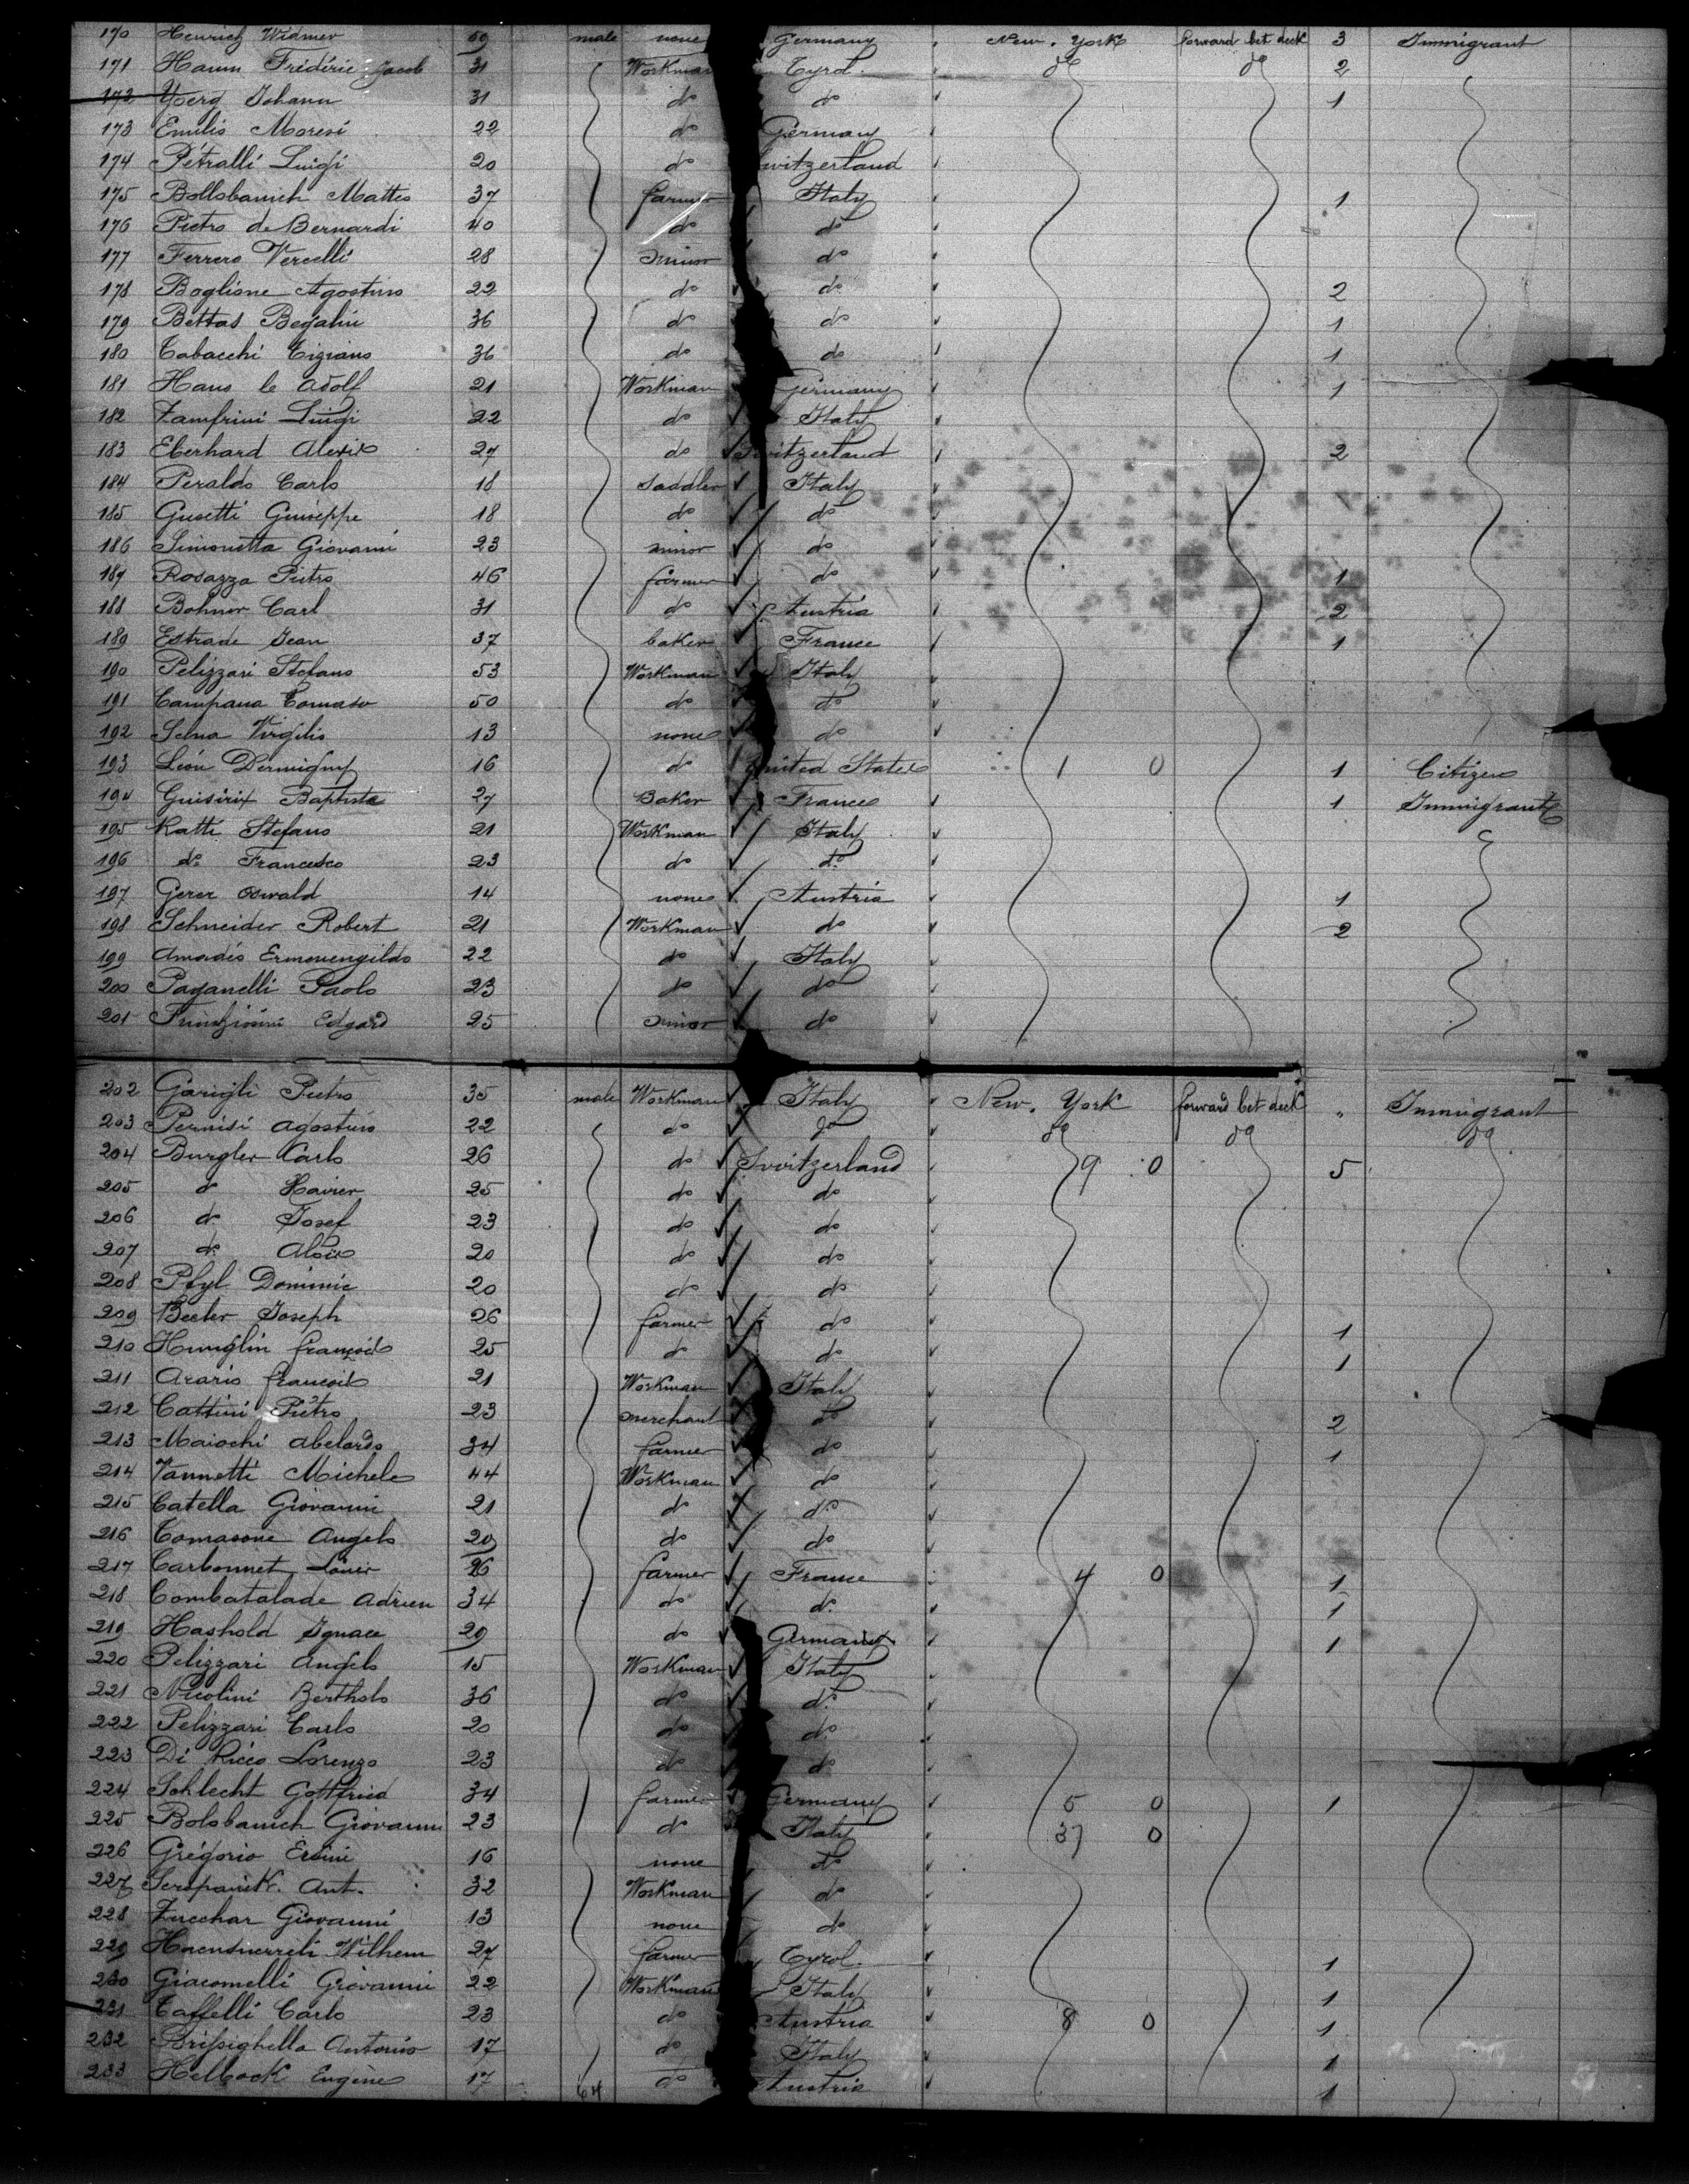 170 Heinrich Widmer 59 male none Germany New York forward bet deck 3 Immigrant
171 Hamm Frédéric Jacob 31 Workman Tyrol. do do 2
172 Johann 31 do do 1
173 Emilio Moresi 22 do Germany
174 Pétralli Luigi 20 do Switzerland
175 Bollobanich Matteo 37 farmer Italy 1
176 Pietro de Bernardi 40 do do
177 Ferrero Vercelli 28 minor do
178 Boglione Agostino 22 do do 2
179 Bettas 36 do do 1
180 Tabacchi Tiziano 36 do do 1
181 Haus le Adolf 21 Workman Germany 1
182 Zamfrini Luigi 22 do Italy
183 Eberhard Alexis 27 do Switzerland 2
184 Peraldo Carlo 18 Saddler Italy
185 Gusetti Guiseppe 18 do do
186 Simonetta Giovanni 23 minor do
187 Rosazza Pietro 46 farmer do 1
188 Bohner Carl 31 do Austria 2
189 Estrade Jean 37 baker France 1
190 Pelizzari Stefano 53 Workman Italy
191 Campana Tomaso 50 do do
192 Selna Virgilio 13 none do
193 Léon Dermigny 16 do United States 1 0 1 Citizen
194 Baptiste 27 Baker France 1 Immigrant
195 Ratti Stefano 21 Workman Italy
196 do Francesco 23 do do
197 Gerer Oswald 14 none Austria 1
198 Schneider Robert 21 Workman do 2
199 Amadéo Ermenengildo 22 do Italy
200 Paganelli Paolo 23 do do
201 Edgard 25 minor do
202 Garigli Pietro 35 male Workman Italy New York forward bet deck " Immigrant
203 Pernisi Agostino 22 do do do do do
204 Burgler Carlo 26 do Switzerland 9 0 5
205 do Xavier 25 do do
206 do Josef 23 do do
207 do Alois 20 do do
208 Pfyl Dominic 20 do do
209 Beeler Joseph 26 farmer do 1
210 Hunglin françois 25 do do 1
211 Araris françois 21 Workman Italy
212 Cattini Piétro 23 merchant do 2
213 Maiochi Abelardo 34 farmer do 1
214 Vannetti Michele 44 Workman do
215 Catella Giovanni 21 do do
216 Tomasone Angelo 20 do do
217 Carbonnet Louis 26 farmer France 4 0 1
218 Combatalade Adrien 34 do do 1
219 Hashold Ignace 29 do Germany 1
220 Pelizzari Angelo 15 Workman Italy
221 Nicolini Bertholo 36 do do
222 Pelizzari Carlo 20 do do
223 Di Ricco Lorenzo 23 do do
224 Schlecht Gottfried 34 farmer Germany 5 0 1
225 Bolobanich Giovanni 23 do Italy 37 0
226 Grégorio Ersini 16 none do
227 Ant. 32 Workman do
228 Zucchar Giovanni 13 none do
229 Wilhem 27 farmer Tyrol. 1
230 Giacomelli Giovanni 22 Workman Italy 1
231 Taffelli Carlo 23 do Austria 8 0 1
232 Brisighella Antonio 17 do Italy 1
233 Helbock Eugène 17 64 do Austria 1